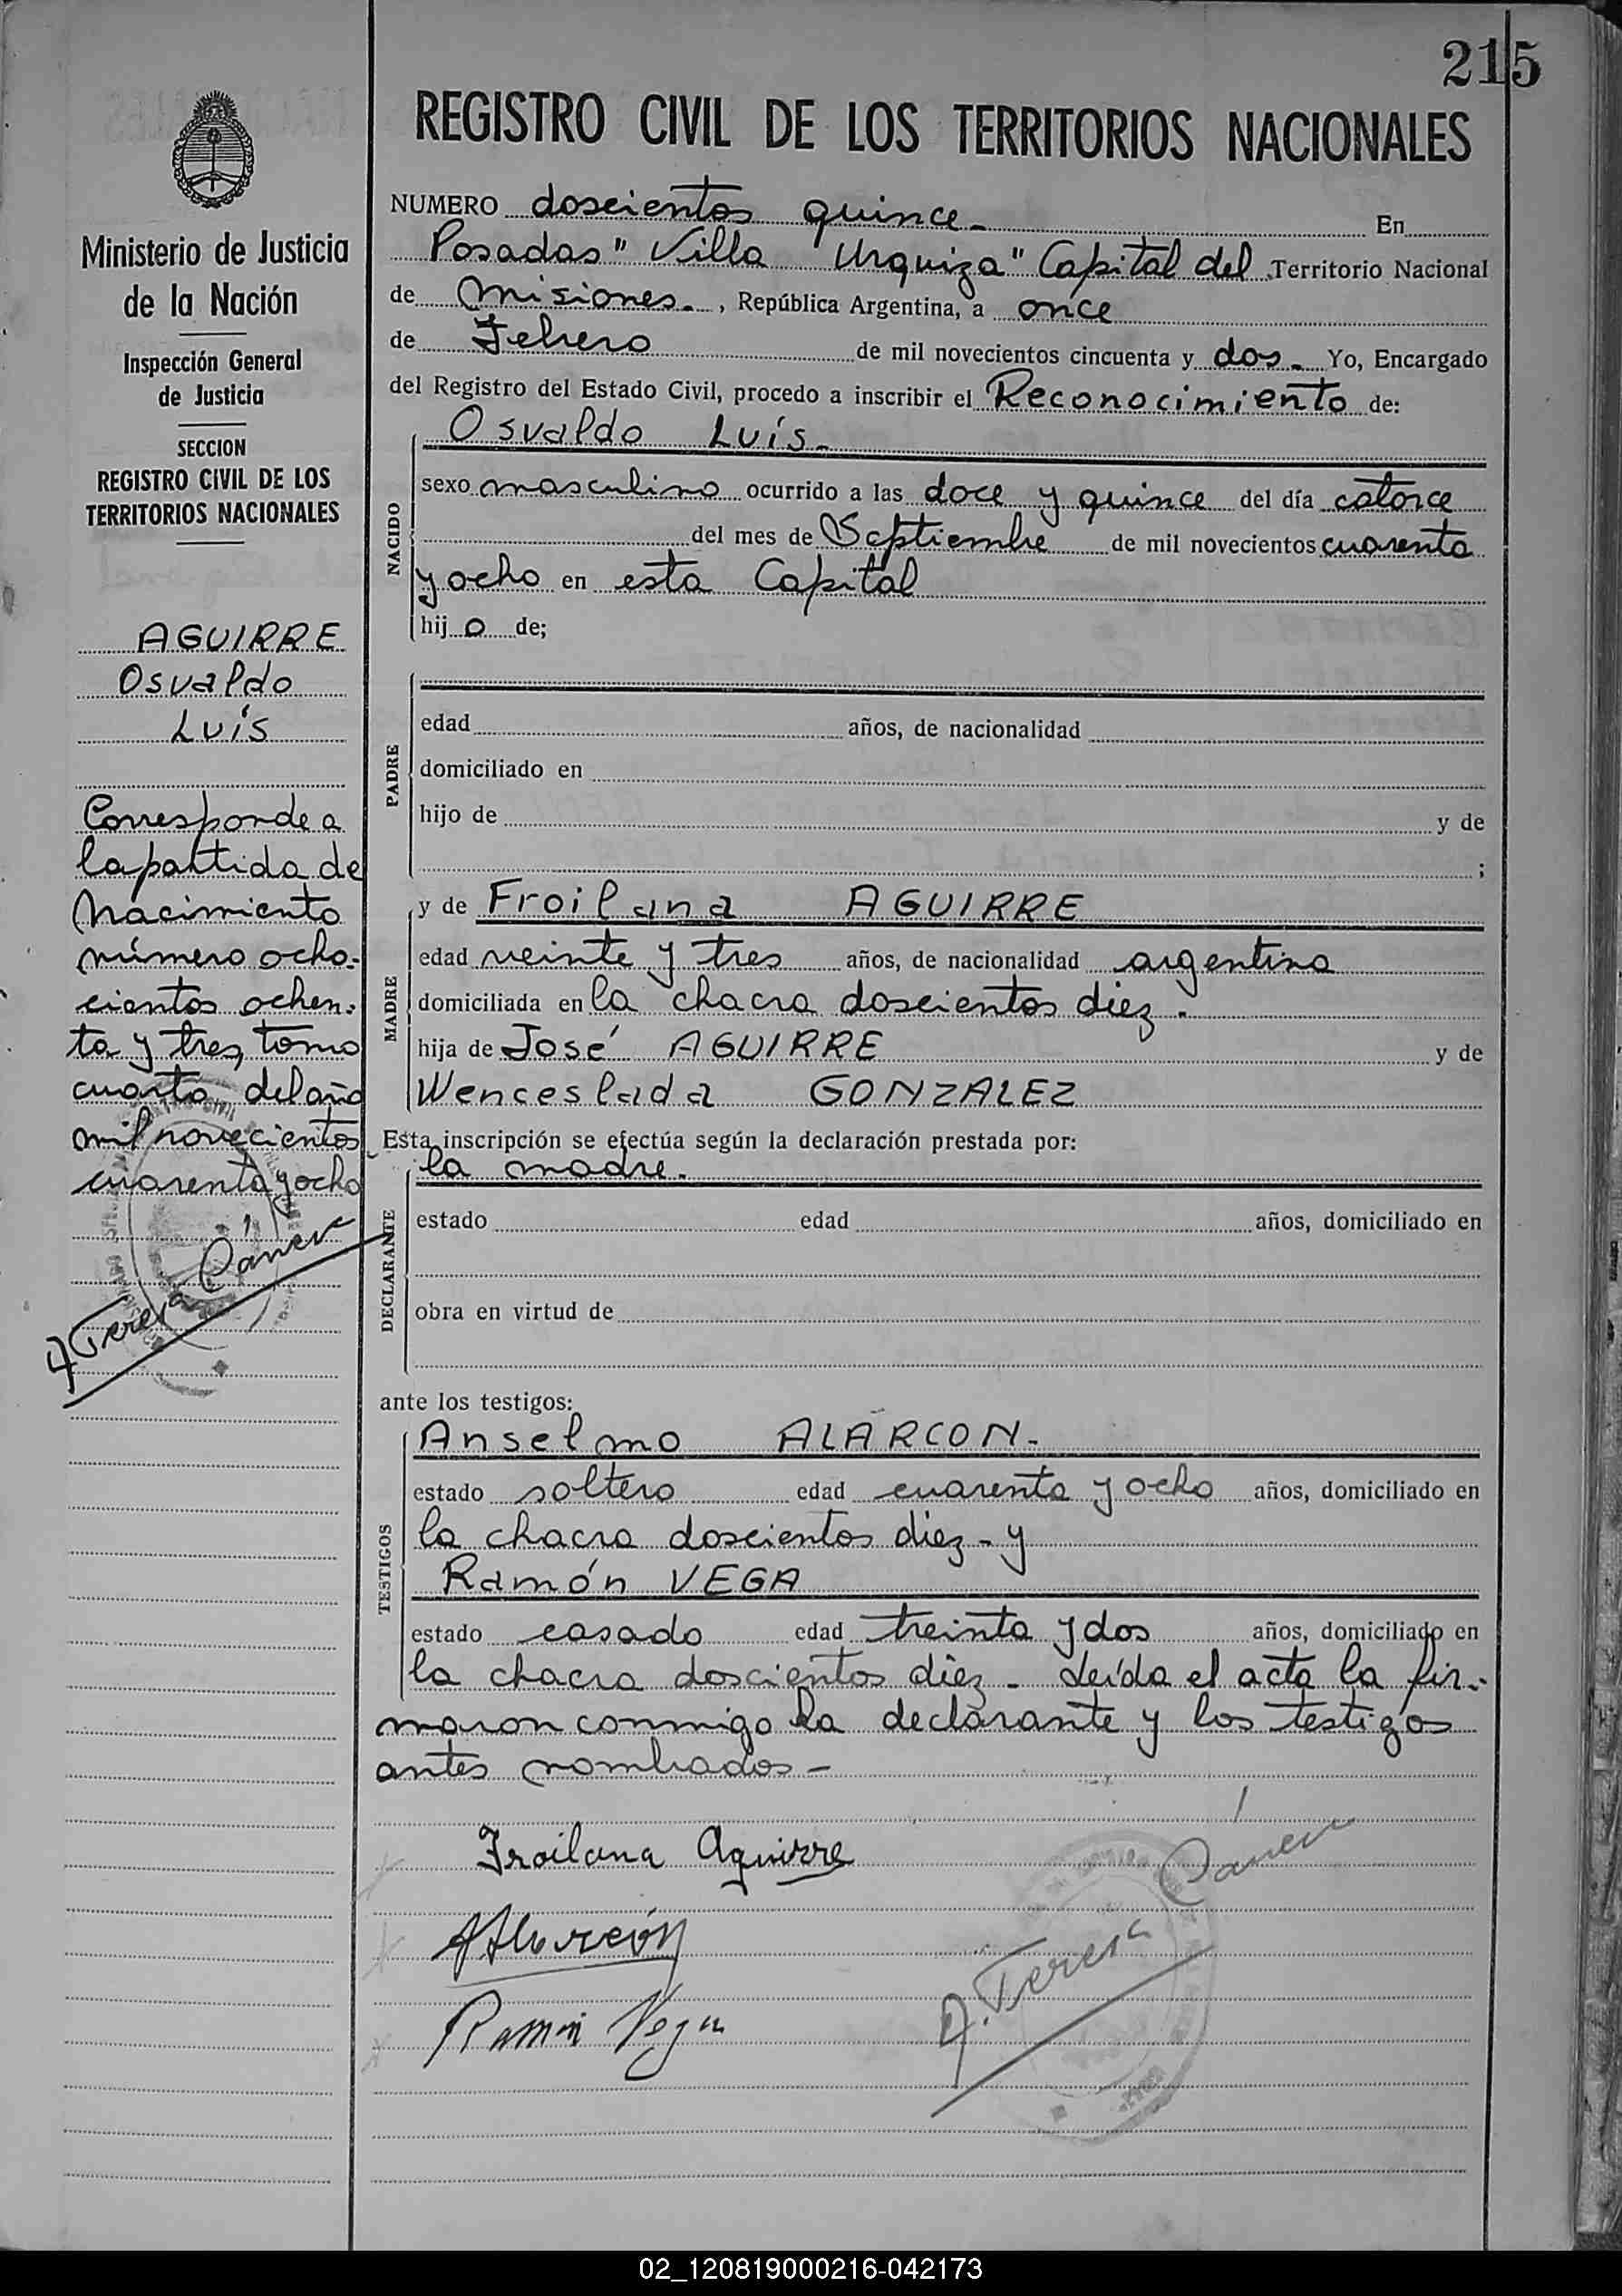 215
REGISTRO CIVIL DE LOS TERRITORIOS NACIONALES
Ministerio de Justicia
de la Nación
Inspección General
de Justicia
SECCION
REGISTRO CIVIL DE LOS
TERRITORIOS NACIONALES
AGUIRRE
Osvaldo
Luís
Corresponde a
la partida de
Nacimiento
número ocho-
cientos ochen-
ta y tres, tomo
cuarto del año
mil novecientos
cuarenta y ocho
A. Teresa
NUMERO doscientos quince - En
Posadas "Villa Urquiza" Capital del Territorio Nacional
de Misiones. , República Argentina, a once
de Febrero de mil novecientos cincuenta y dos - Yo, Encargado
del Registro del Estado Civil, procedo a inscribir el Reconocimiento de:
Osvaldo Luís -
NACIDO
sexo masculino ocurrido a las doce y quince del día catorce
del mes de Septiembre de mil novecientos cuarenta
y ocho en esta Capital
hij o de;
PADRE
edad años, de nacionalidad
domiciliado en
hijo de y de
;
y de Froilana AGUIRRE
MADRE
edad veinte y tres años, de nacionalidad argentina
domiciliada en la chacra doscientos diez -
hija de José AGUIRRE y de
Wenceslada GONZALEZ
Esta inscripción se efectúa según la declaración prestada por:
la madre.
DECLARANTE
estado edad años, domiciliado en
obra en virtud de
ante los testigos:
Anselmo ALARCON -
TESTIGOS
estado soltero edad cuarenta y ocho años, domiciliado en
la chacra doscientos diez - y
Ramón VEGA
estado casado edad treinta y dos años, domiciliado en
la chacra doscientos diez - Leída el acta la fir-
maron conmigo la declarante y los testigos
antes nombrados -
Froilana Aguirre
AAlarcón
Ramón Vega
A. Teresa
02_120819000216-042173